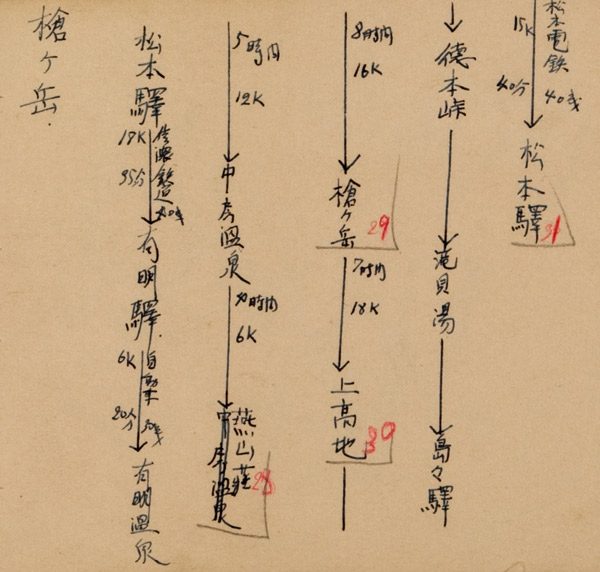 槍ヶ岳.
松本驛
17K
信濃鉄道
35分
有明驛.
6K
自動車
20分
有明温泉
5時間
12K
中房温泉
時間
6K
燕山荘
中房温泉
28
8時間
16K
槍ヶ岳
29
7時間
18K
上高地
30
德本峠
滝貝湯
島々驛
15K
松本電鉄
40分
40銭
松本驛
31